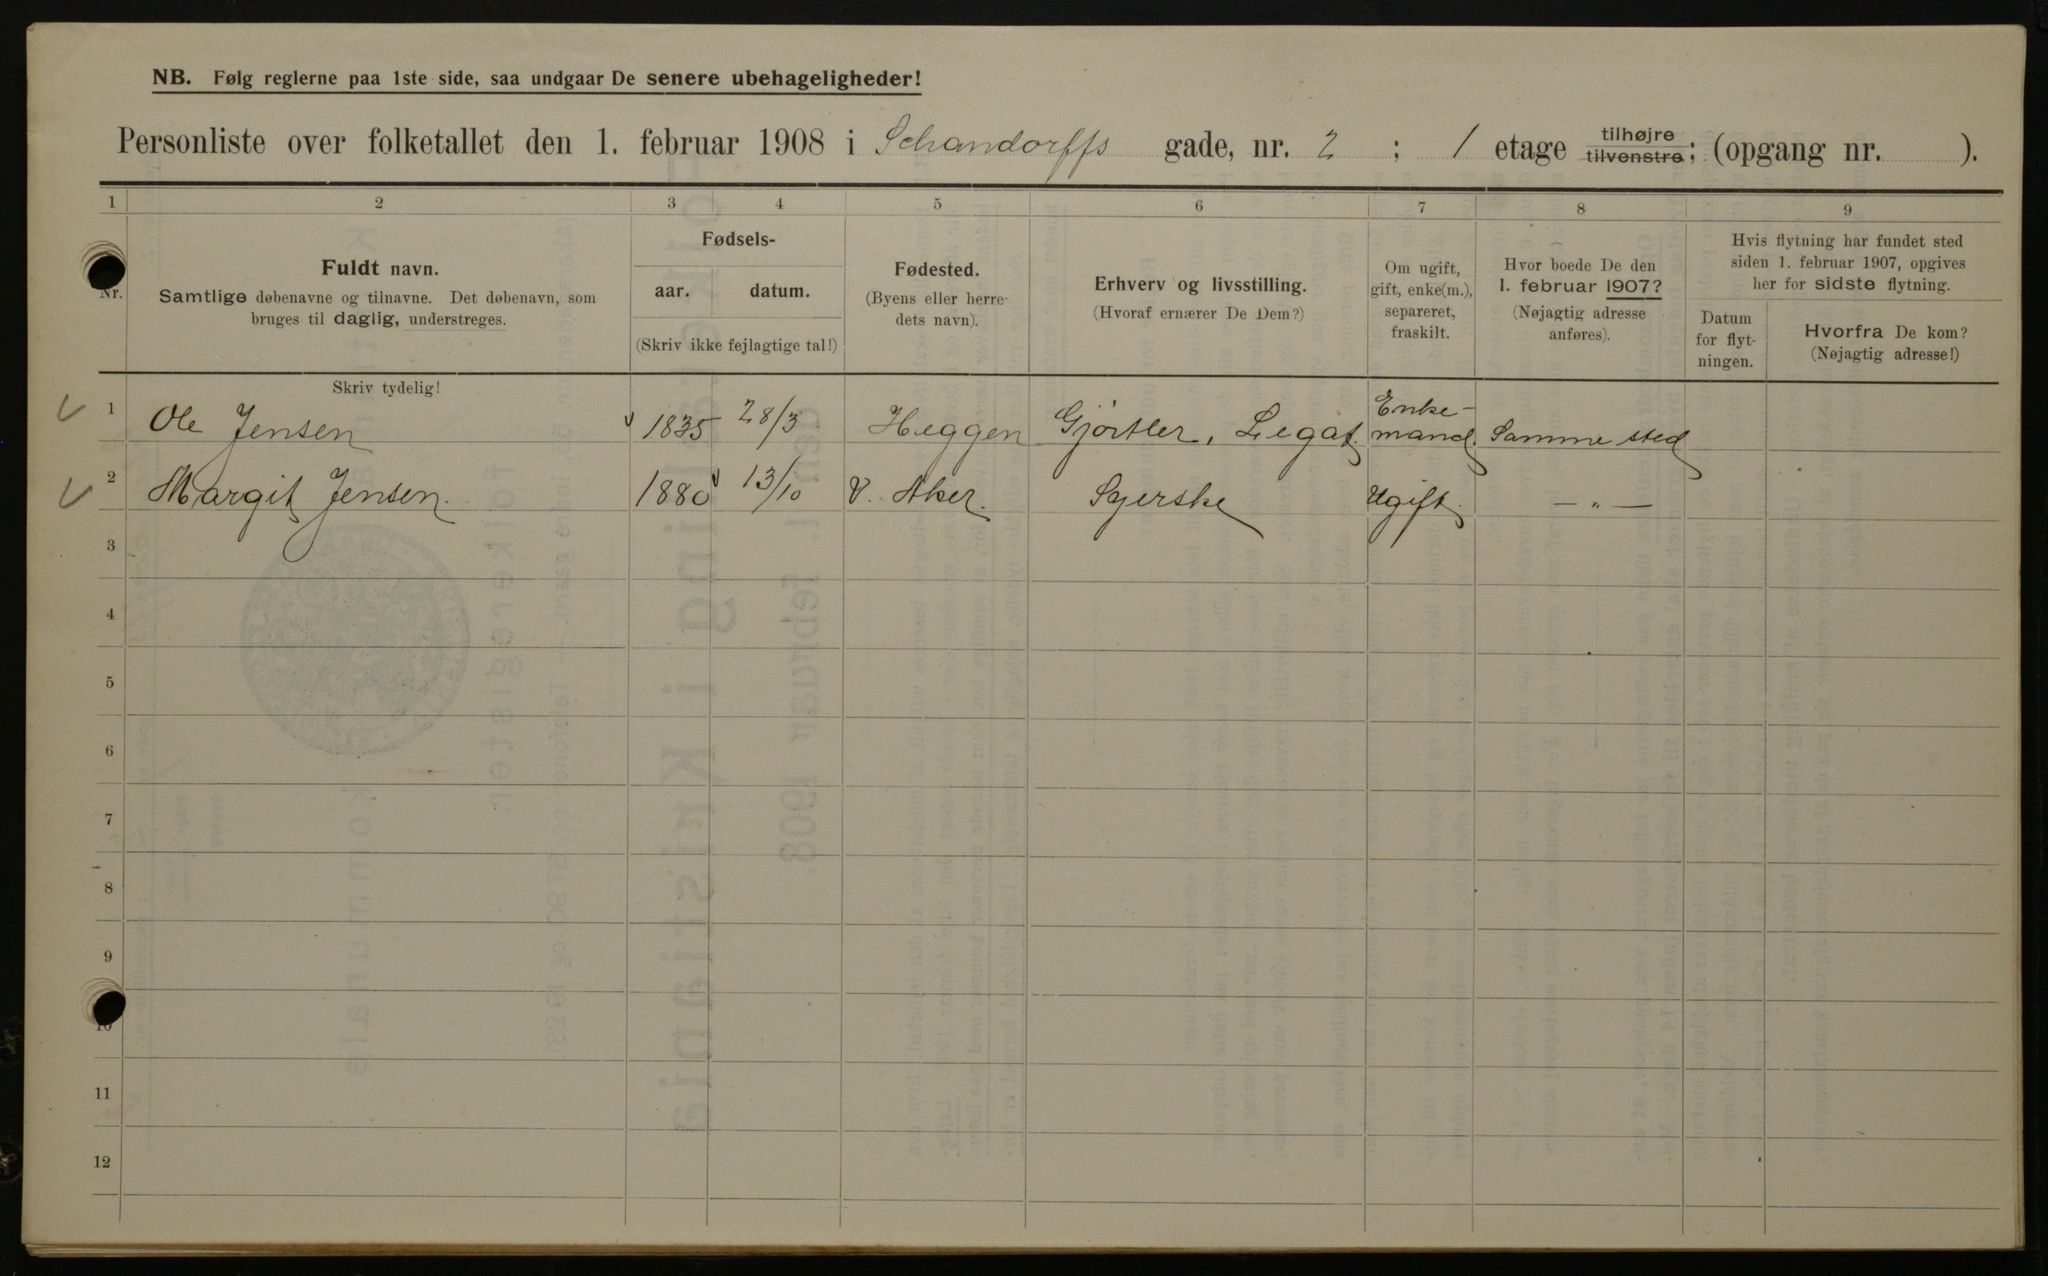 NB. Følg reglerne paa 1ste side, saa undgaar De senere ubehageligheder!
Personliste over folketallet den 1. februar 1908 i Schandorffs gade, nr. 2 ; 1 etage tilhøjre tilvenstre; (opgang nr. ).
1 2 3 4 5 6 7 8 9
Nr.
Fuldt navn.
Samtlige døbenavne og tilnavne. Det døbenavn, som
bruges til daglig, understreges.
Skriv tydelig!
Fødsels-
aar. datum.
(Skriv ikke fejlagtige tal!)
Fødested.
(Byens eller herre-
dets navn).
Erhverv og livsstilling.
(Hvoraf ernærer De Dem?)
Om ugift,
gift, enke(m.),
separeret,
fraskilt.
Hvor boede De den
1. februar 1907?
(Nøjagtig adresse
anføres).
Hvis flytning har fundet sted
siden 1. februar 1907, opgives
her for sidste flytning.
Datum
for flyt-
ningen.
Hvorfra De kom?
(Nøjagtig adresse!)
1 Ole Jensen 1835 28/3 Heggen Gjørtler, Legat. Enke-
mand. Samme sted
2 Margit Jensen. 1880 13/10 V. Aker. Syerske Ugift. — „ —
3
4
5
6
7
8
9
10
11
12